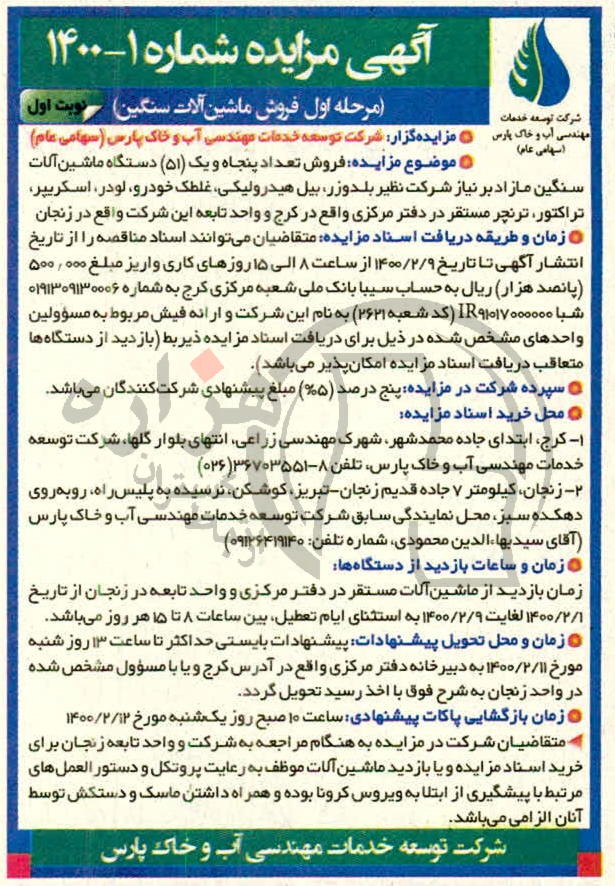 آگهی مزایده شماره ۱-۱۴۰۰
(مرحله اول فروش ماشین‌آلات سنگین)
نوبت اول
شرکت توسعه خدمات
مهندسی آب و خاک پارس
(سهامی عام)
مزایده‌گزار: شرکت توسعه خدمات مهندسی آب و خاک پارس (سهامی عام)
موضوع مزایده: فروش تعداد پنجاه و یک (۵۱) دستگاه ماشین‌آلات
سنگین مازاد بر نیاز شرکت نظیر بلدوزر، بیل هیدرولیکی، غلطک خودرو، لودر، اسکریپر،
تراکتور، ترنچر مستقر در دفتر مرکزی واقع در کرج و واحد تابعه این شرکت واقع در زنجان
زمان و طریقه دریافت اسناد مزایده: متقاضیان می‌توانند اسناد مناقصه را از تاریخ
انتشار آگهی تا تاریخ ۱۴۰۰/۲/۹ از ساعت ۸ الی ۱۵ روزهای کاری واریز مبلغ ۵۰۰٫۰۰۰
(پانصد هزار) ریال به حساب سیبا بانک ملی شعبه مرکزی کرج به شماره ۰۱۹۱۳۰۹۱۳۰۰۰۶
شبا IR۹۱۰۱۷۰۰۰۰۰۰ (کد شعبه ۲۶۲۱) به نام این شرکت و ارائه فیش مربوط به مسؤولین
واحدهای مشخص شده در ذیل برای دریافت اسناد مزایده ذیربط (بازدید از دستگاه‌ها
متعاقب دریافت اسناد مزایده امکان‌پذیر می‌باشد).
سپرده شرکت در مزایده: پنج درصد (۵%) مبلغ پیشنهادی شرکت‌کنندگان می‌باشد.
محل خرید اسناد مزایده:
۱- کرج، ابتدای جاده محمدشهر، شهرک مهندسی زراعی، انتهای بلوار گلها، شرکت توسعه
خدمات مهندسی آب و خاک پارس، تلفن ۸-۳۶۷۰۳۵۵۱(۰۲۶)
۲- زنجان، کیلومتر ۷ جاده قدیم زنجان-تبریز، کوشکن، نرسیده به پلیس‌راه، روبه‌روی
دهکده سبز، محل نمایندگی سابق شرکت توسعه خدمات مهندسی آب و خاک پارس
(آقای سیدبهاءالدین محمودی، شماره تلفن: ۰۹۱۲۶۴۱۹۱۴۰)
زمان و ساعات بازدید از دستگاه‌ها:
زمان بازدید از ماشین‌آلات مستقر در دفتر مرکزی و واحد تابعه در زنجان از تاریخ
۱۴۰۰/۲/۱ لغایت ۱۴۰۰/۲/۹ به استثنای ایام تعطیل، بین ساعات ۸ تا ۱۵ هر روز می‌باشد.
زمان و محل تحویل پیشنهادات: پیشنهادات بایستی حداکثر تا ساعت ۱۳ روز شنبه
مورخ ۱۴۰۰/۲/۱۱ به دبیرخانه دفتر مرکزی واقع در آدرس کرج و یا با مسؤول مشخص شده
در واحد زنجان به شرح فوق با اخذ رسید تحویل گردد.
زمان بازگشایی پاکات پیشنهادی: ساعت ۱۰ صبح روز یک‌شنبه مورخ ۱۴۰۰/۲/۱۲
متقاضیان شرکت در مزایده به هنگام مراجعه به شرکت و واحد تابعه زنجان برای
خرید اسناد مزایده و یا بازدید ماشین‌آلات موظف به رعایت پروتکل و دستورالعمل‌های
مرتبط با پیشگیری از ابتلا به ویروس کرونا بوده و همراه داشتن ماسک و دستکش توسط
آنان الزامی می‌باشد.
شرکت توسعه خدمات مهندسی آب و خاک پارس